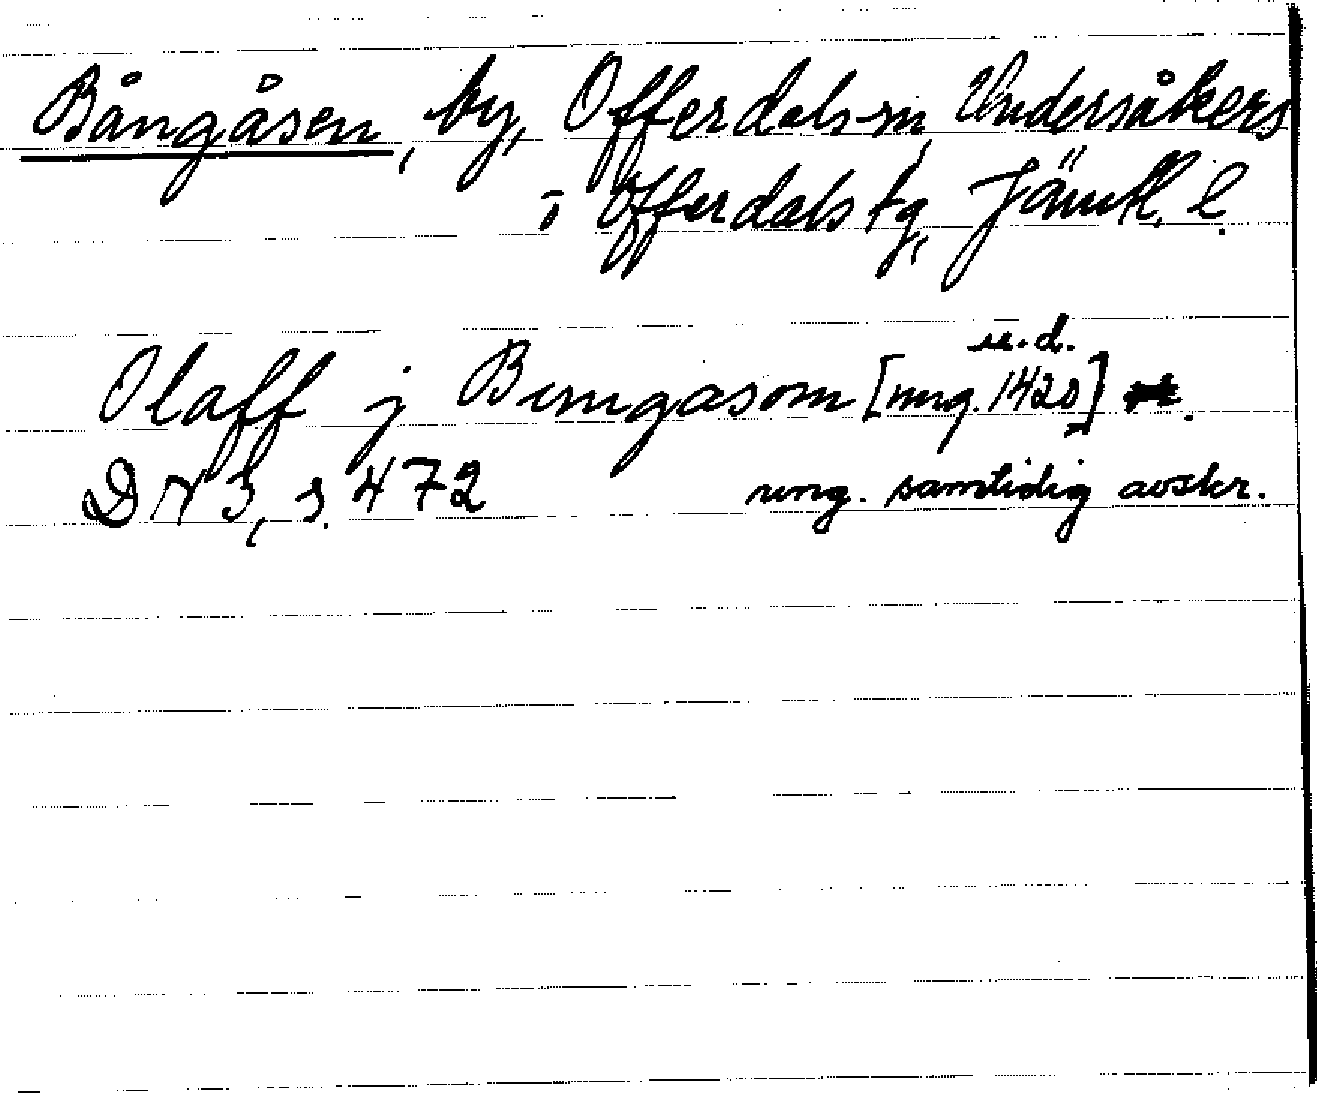 Bångåsen, by, Offerdals sn, Undersåkers
o Offerdals tg, Jämtl. l.
u.d.
Olaff j Bungasom [ung. 1420]
DN 3, s. 472 ung. samtidig avskr.